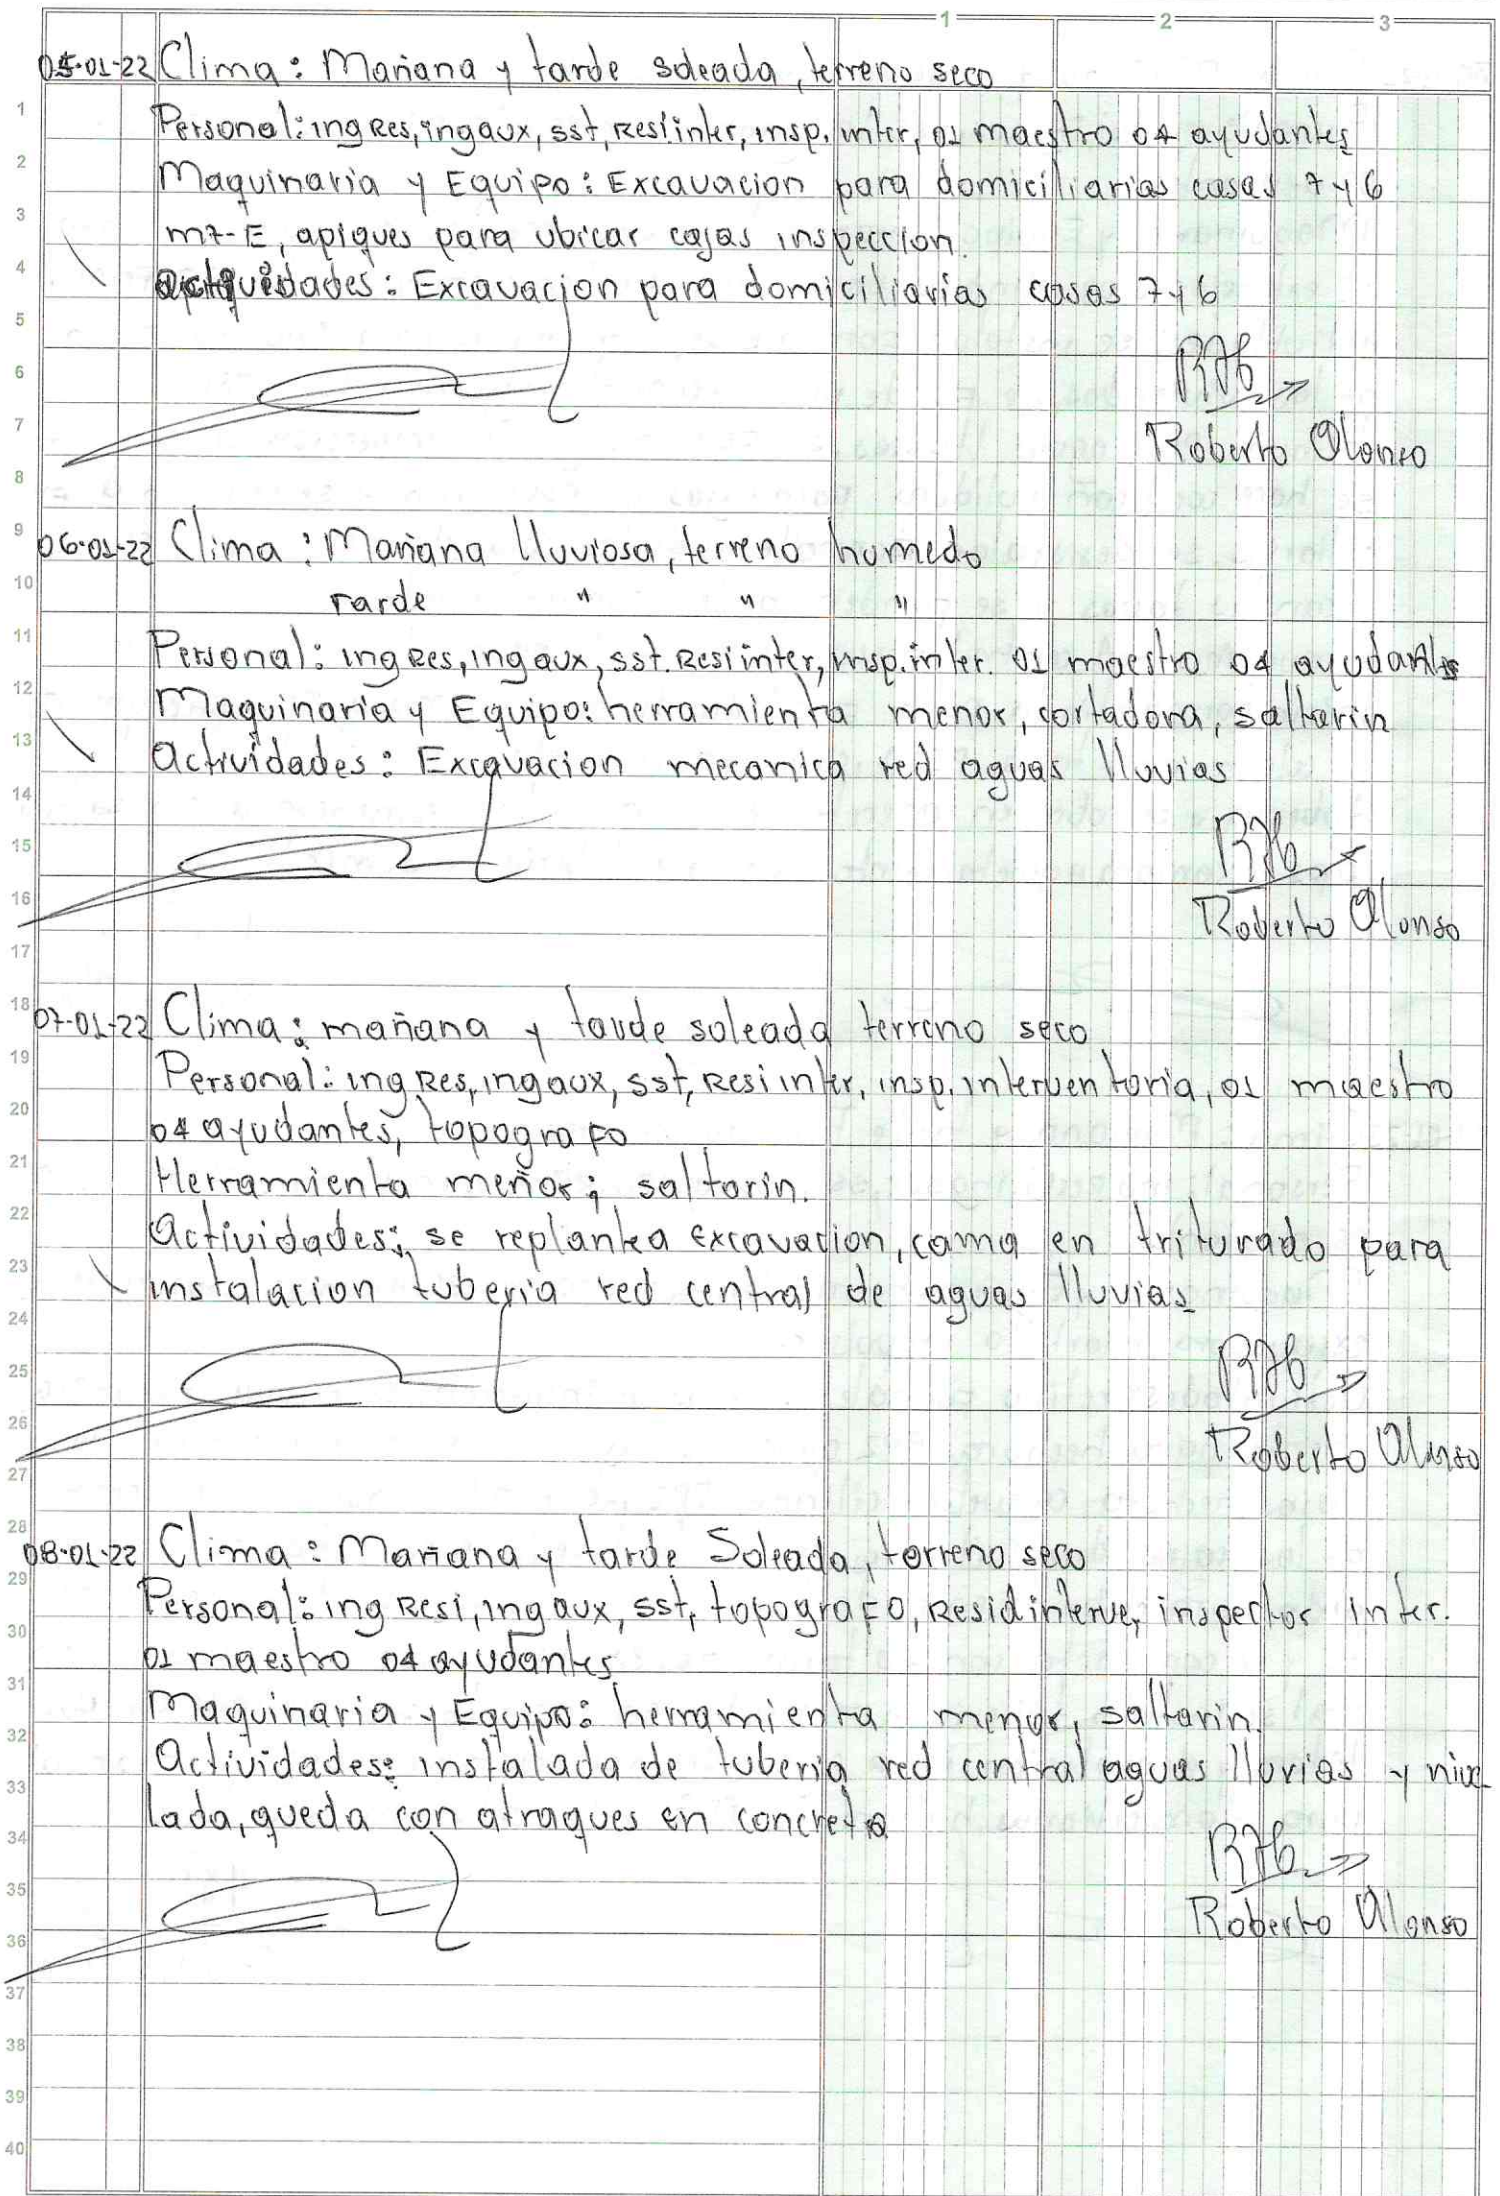 1 2 3
05-01-22 Clima: Mañana y tarde soleada, terreno seco
1 Personal: ing Res, ing aux, sst, Resi inter, insp. inter, 01 maestro 04 ayudantes
2 Maquinaria y Equipo: Excavacion para domiciliarias casas 7 y 6
3 m7-E, apiques para ubicar cajas inspeccion.
4 actividades: Excavacion para domiciliarias casas 7 y 6
5
6
7 Roberto Alonso
8
9 06-01-22 Clima: Mañana lluviosa, terreno humedo
10 rarde " " "
11 Personal: ing Res, ing aux, sst. Resi inter, insp. inter. 01 maestro 04 ayudantes
12 Maquinaria y Equipo: herramienta menor, cortadora, saltarin
13 Actividades: Excavacion mecanica red aguas lluvias
14
15
16 Roberto Alonso
17
18 07-01-22 Clima: mañana y tarde soleada terreno seco
19 Personal: ing Res, ing aux, sst, Resi inter, insp. interventoria, 01 maestro
20 04 ayudantes, topografo
21 Herramienta menor; saltarin.
22 Actividades: se replantea excavacion, cama en triturado para
23 instalacion tuberia red central de aguas lluvias
24
25
26 Roberto Alonso
27
28 08-01-22 Clima: Mañana y tarde Soleada, terreno seco
29 Personal: ing Resi, ing aux, sst, topografo, Resid interve, inspector inter.
30 01 maestro 04 ayudantes
31 Maquinaria y Equipo: herramienta menor, saltarin.
32 Actividades: instalada de tuberia red central aguas lluvias y nive
33 lada, queda con atraques en concreto
34
35 Roberto Alonso
36
37
38
39
40